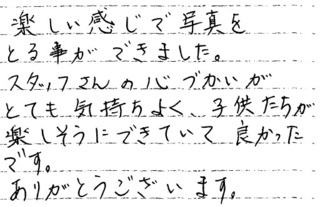 楽しい感じで写真を
とる事ができました。
スタッフさんの心づかいが
とても気持ちよく、子供たちが
楽しそうにできていて良かった
です。
ありがとうございます。